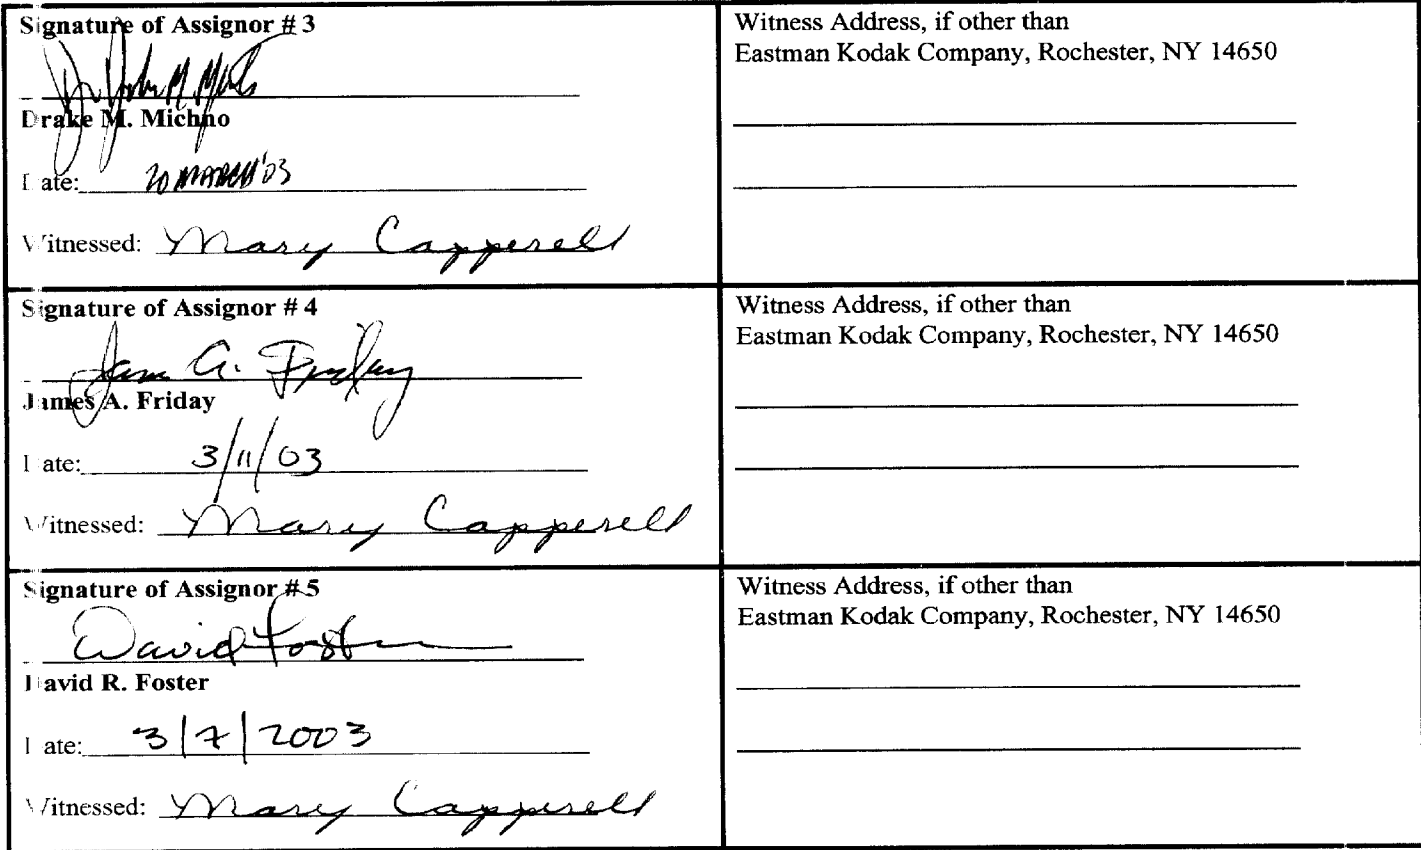 Signature of Assignor # 3
Drake M. Michno
Date: 20 MARCH '03
Witnessed: Mary Capperell
Witness Address, if other than
Eastman Kodak Company, Rochester, NY 14650
Signature of Assignor # 4
James A. Friday
James A. Friday
Date: 3/11/03
Witnessed: Mary Capperell
Witness Address, if other than
Eastman Kodak Company, Rochester, NY 14650
Signature of Assignor # 5
David Foster
David R. Foster
Date: 3/7/2003
Witnessed: Mary Capperell
Witness Address, if other than
Eastman Kodak Company, Rochester, NY 14650